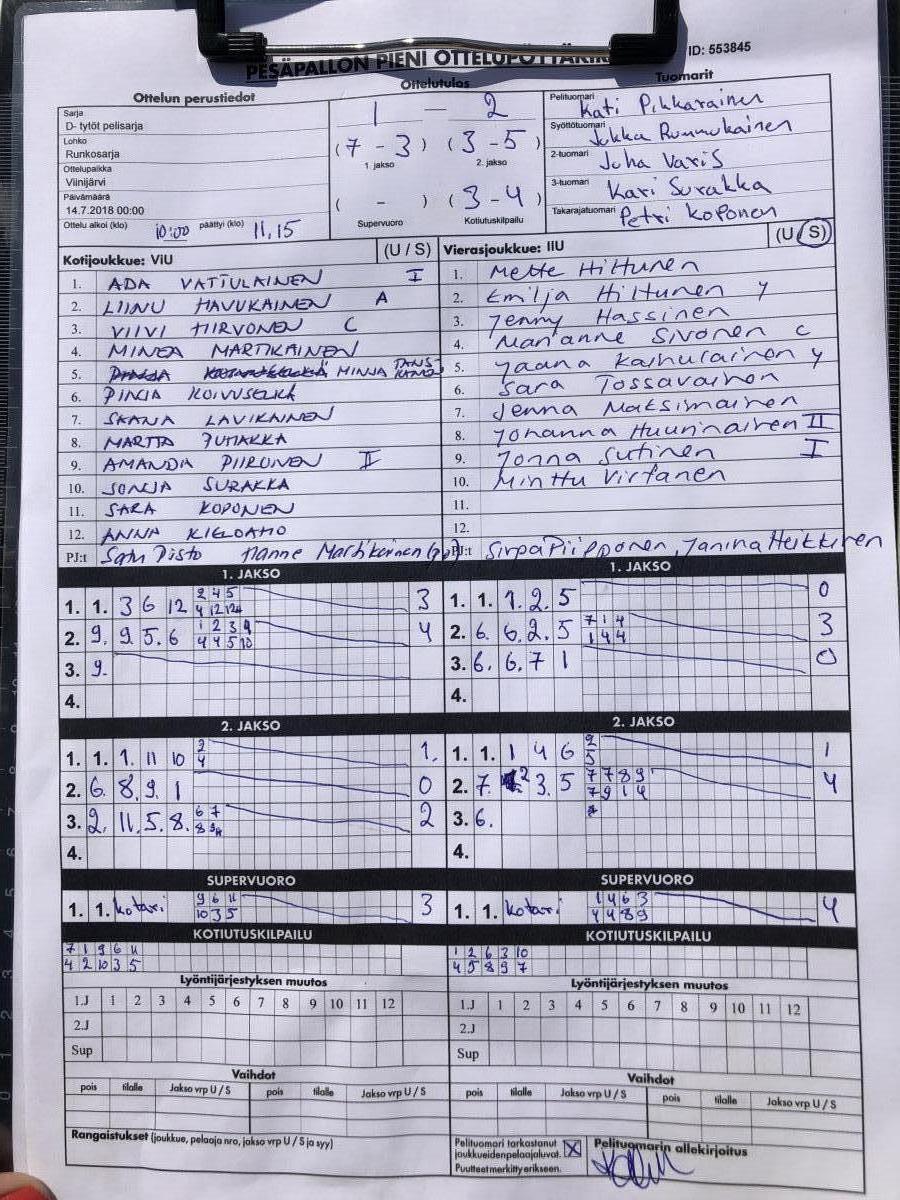 PESÄPALLON PIENI OTTELUPÖYTÄKIRJA
ID: 553845
Ottelun perustiedot
Sarja
D- tytöt pelisarja
Lohko
Runkosarja
Ottelupaikka
Viinijärvi
Päivämäärä
14.7.2018 00:00
Ottelu alkoi (klo) 10:00 päättyi (klo) 11,15
Ottelutulos
1 - 2
(7 - 3) (3 - 5)
1. jakso 2. jakso
( - ) (3 - 4)
Supervuoro Kotiutuskilpailu
Tuomarit
Pelituomari Kati Pikkarainen
Syöttötuomari Jukka Rummukainen
2-tuomari Juha Varis
3-tuomari Kari Surakka
Takarajatuomari Petri Koponen
Kotijoukkue: ViU (U / S)
1. ADA VATTULAINEN I
2. LIINU HAVUKAINEN A
3. VIIVI HIRVONEN C
4. MINEA MARTIKAINEN
5. MINJA TANSKANEN
6. PINJA KOIVUSELKÄ
7. LAVIKAINEN
8. MARTTA JUMAKKA
9. AMANDA PIIRONEN II
10. SONJA SURAKKA
11. SARA KOPONEN
12. ANNA KIELOAHO
PJ:t Satu Hanne Martikainen
Vierasjoukkue: IiU (U / S)
1. Mette Hiltunen
2. Emilja Hiltunen y
3. Jenny Hassinen
4. Marianne Sivonen C
5. Jaana Kaihulainen y
6. Sara Tossavainen
7. Jenna Maksimainen
8. Johanna Huurinainen II
9. Jonna Sutinen I
10. Minttu Virtanen
11.
12.
PJ:t Sirpa Piipponen, Janina Heikkinen
1. JAKSO
1. 1. 3 6 12
2 4 5
4 12 12
3
2. 9. 9. 5. 6
1 2 3 9
4 4 5 10
4
3. 9.
4.
1. JAKSO
1. 1. 1. 2. 5
0
2. 6. 6. 2. 5
7 1 4
1 4 4
3
3. 6. 6. 7 1
0
4.
2. JAKSO
1. 1. 1. 11 10
2
4
1.
2. 6. 8. 9. 1
0
3. 2. 11. 5. 8.
6 7
8
2
4.
2. JAKSO
1. 1. 1 4 6
2
5
1
2. 7. 2 3. 5
7 7 8 9
7 9 1 4
4
3. 6.
4.
SUPERVUORO
1. 1. kotari
9 6 11
10 3 5
3
SUPERVUORO
1. 1. kotari
1 4 6 3
4 4 8 9
4
KOTIUTUSKILPAILU
7 1 9 6 11
4 2 10 3 5
KOTIUTUSKILPAILU
1 2 6 3 10
4 5 8 9 7
Lyöntijärjestyksen muutos
1.J 1 2 3 4 5 6 7 8 9 10 11 12
2.J
Sup
Lyöntijärjestyksen muutos
1.J 1 2 3 4 5 6 7 8 9 10 11 12
2.J
Sup
Vaihdot
pois tilalle Jakso vrp U / S pois tilalle Jakso vrp U / S
Vaihdot
pois tilalle Jakso vrp U / S pois tilalle Jakso vrp U / S
Rangaistukset (joukkue, pelaaja nro, jakso vrp U / S ja syy)
Pelituomari tarkastanut
joukkueidenpelaajaluvat. X
Puutteet merkitty erikseen.
Pelituomarin allekirjoitus